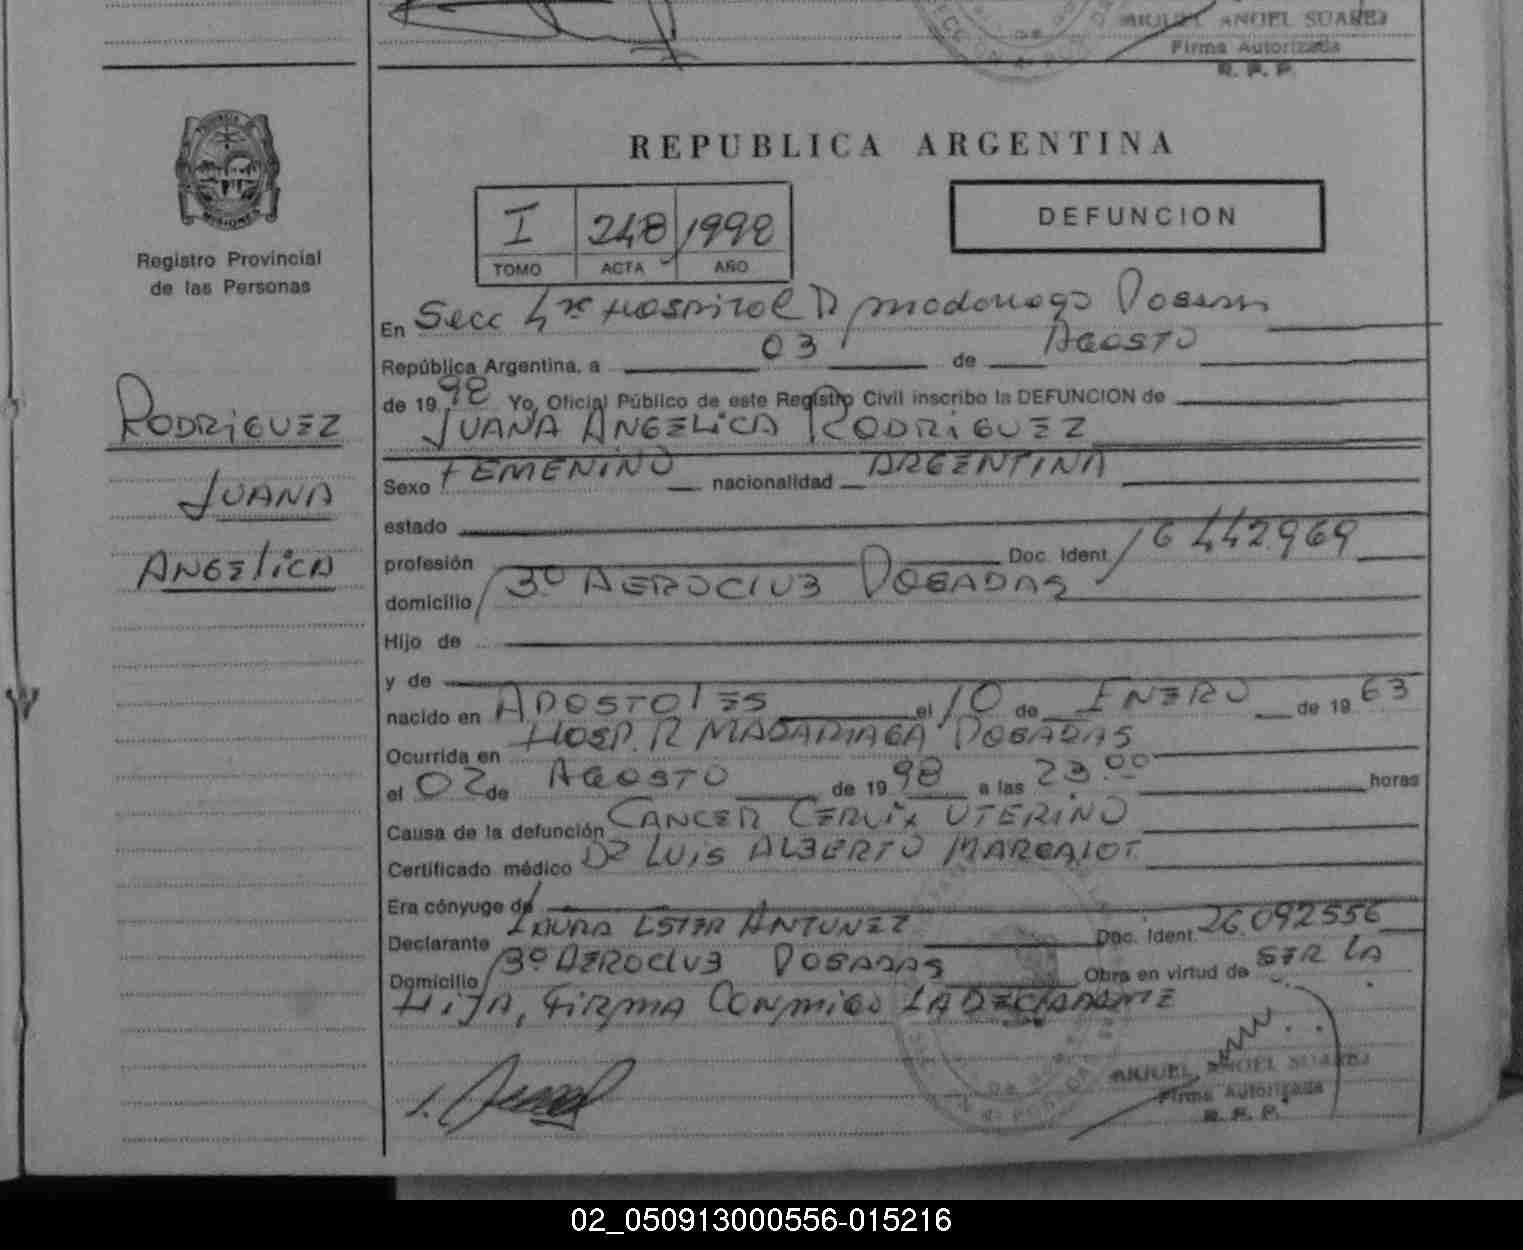 MIGUEL ANGEL SUAREZ
Firma Autorizada
R. P. P.
MISIONES
Registro Provincial
de las Personas
RODRIGUEZ
JUANA
ANGELICA
REPUBLICA ARGENTINA
I 248 1998
TOMO ACTA AÑO
DEFUNCION
En Secc 4ta Hospital R Madariaga Posadas
República Argentina, a 03 de Agosto
de 1998 Yo, Oficial Público de este Registro Civil inscribo la DEFUNCION de
JUANA ANGELICA RODRIGUEZ
Sexo FEMENINO nacionalidad ARGENTINA
estado
profesión Doc. Ident. 16.442.969
domicilio B° AEROCLUB POSADAS
Hijo de
y de
nacido en APOSTOLES el 10 de ENERO de 1963
Ocurrida en HOSP. R MADARIAGA POSADAS
el 02 de AGOSTO de 1998 a las 23.00 horas
Causa de la defunción CANCER CERVIX UTERINO
Certificado médico Dr LUIS ALBERTO
Era cónyuge de
Declarante LAURA ESTER ANTUNEZ Doc. Ident. 26.092556
Domicilio B° AEROCLUB POSADAS Obra en virtud de SER LA
HIJA, FIRMA CONMIGO LA DECLARANTE
MIGUEL ANGEL SUAREZ
Firma Autorizada
R. P. P.
02_050913000556-015216